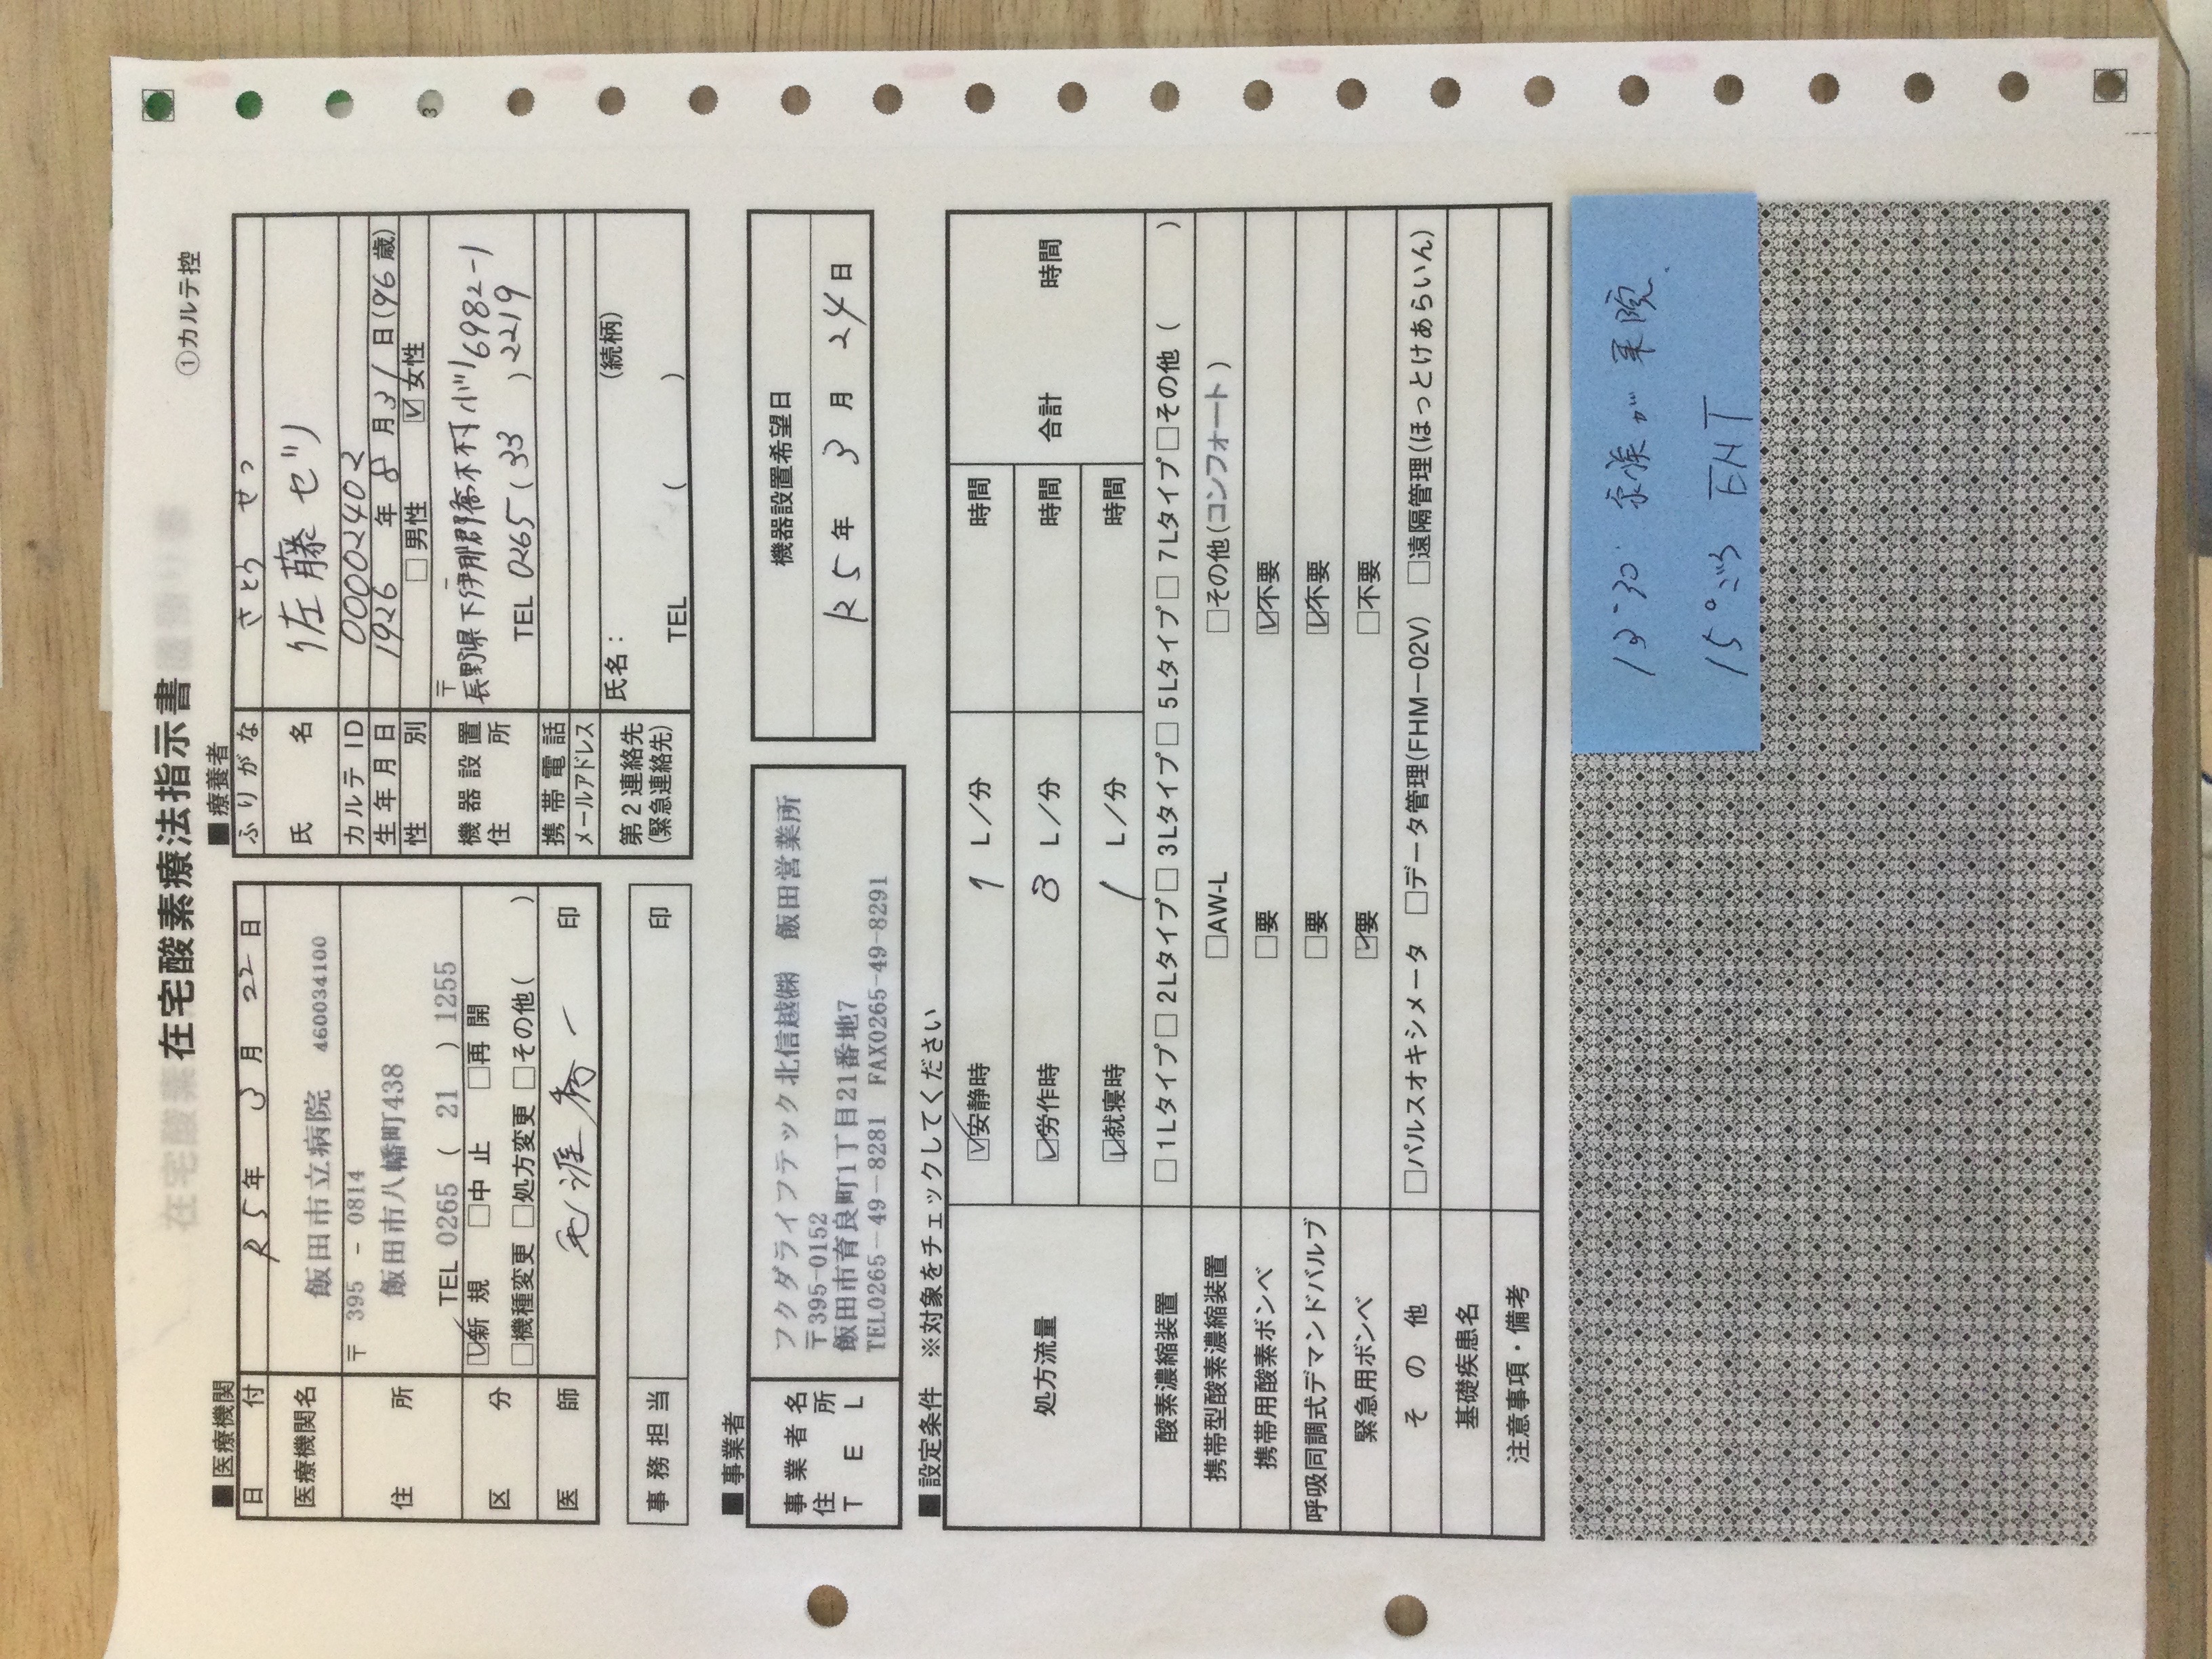 在宅酸素療法指示書
①カルテ控
■医療機関
日付 R5年 3月 22日
医療機関名 飯田市立病院 460034100
住所 〒 395 - 0814
飯田市八幡町438
TEL 0265 ( 21 ) 1255
区分 ☑新規 □中止 □再開
□機種変更 □処方変更 □その他( )
医師 印
事務担当 印
■療養者
ふりがな さとう せつ
氏名 佐藤 セツ
カルテID 00002402
生年月日 1926年 8月31日(96歳)
性別 □男性 ☑女性
機器設置住所 〒 -
長野県下伊那郡喬木村小川6982-1
TEL 0265 ( 33 ) 2219
携帯電話
メールアドレス
第2連絡先 氏名: (続柄)
(緊急連絡先) TEL ( )
■事業者
事業者名 フクダライフテック北信越㈱ 飯田営業所
住所 〒395-0152
飯田市育良町1丁目21番地7
TEL TEL0265-49-8281 FAX0265-49-8291
機器設置希望日
R5年 3月 24日
■設定条件 ※対象をチェックしてください
処方流量 ☑安静時 1 L/分 時間 合計 時間
☑労作時 3 L/分 時間
☑就寝時 1 L/分 時間
酸素濃縮装置 □1Lタイプ □2Lタイプ □3Lタイプ □5Lタイプ □7Lタイプ □その他( )
携帯型酸素濃縮装置 □AW-L □その他(コンフォート)
携帯用酸素ボンベ □要 ☑不要
呼吸同調式デマンドバルブ □要 ☑不要
緊急用ボンベ ☑要 □不要
その他 □パルスオキシメータ □データ管理(FHM-02V) □遠隔管理(ほっとけあらいん)
基礎疾患名
注意事項・備考
13:30 家族が来院
15°ごろ ENT
3